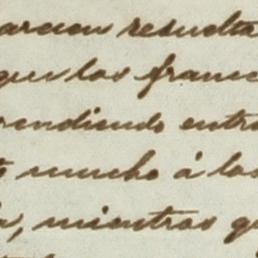 arecen resuelta
que los franc
rendiendo entr
mucho á los
a, mientras q